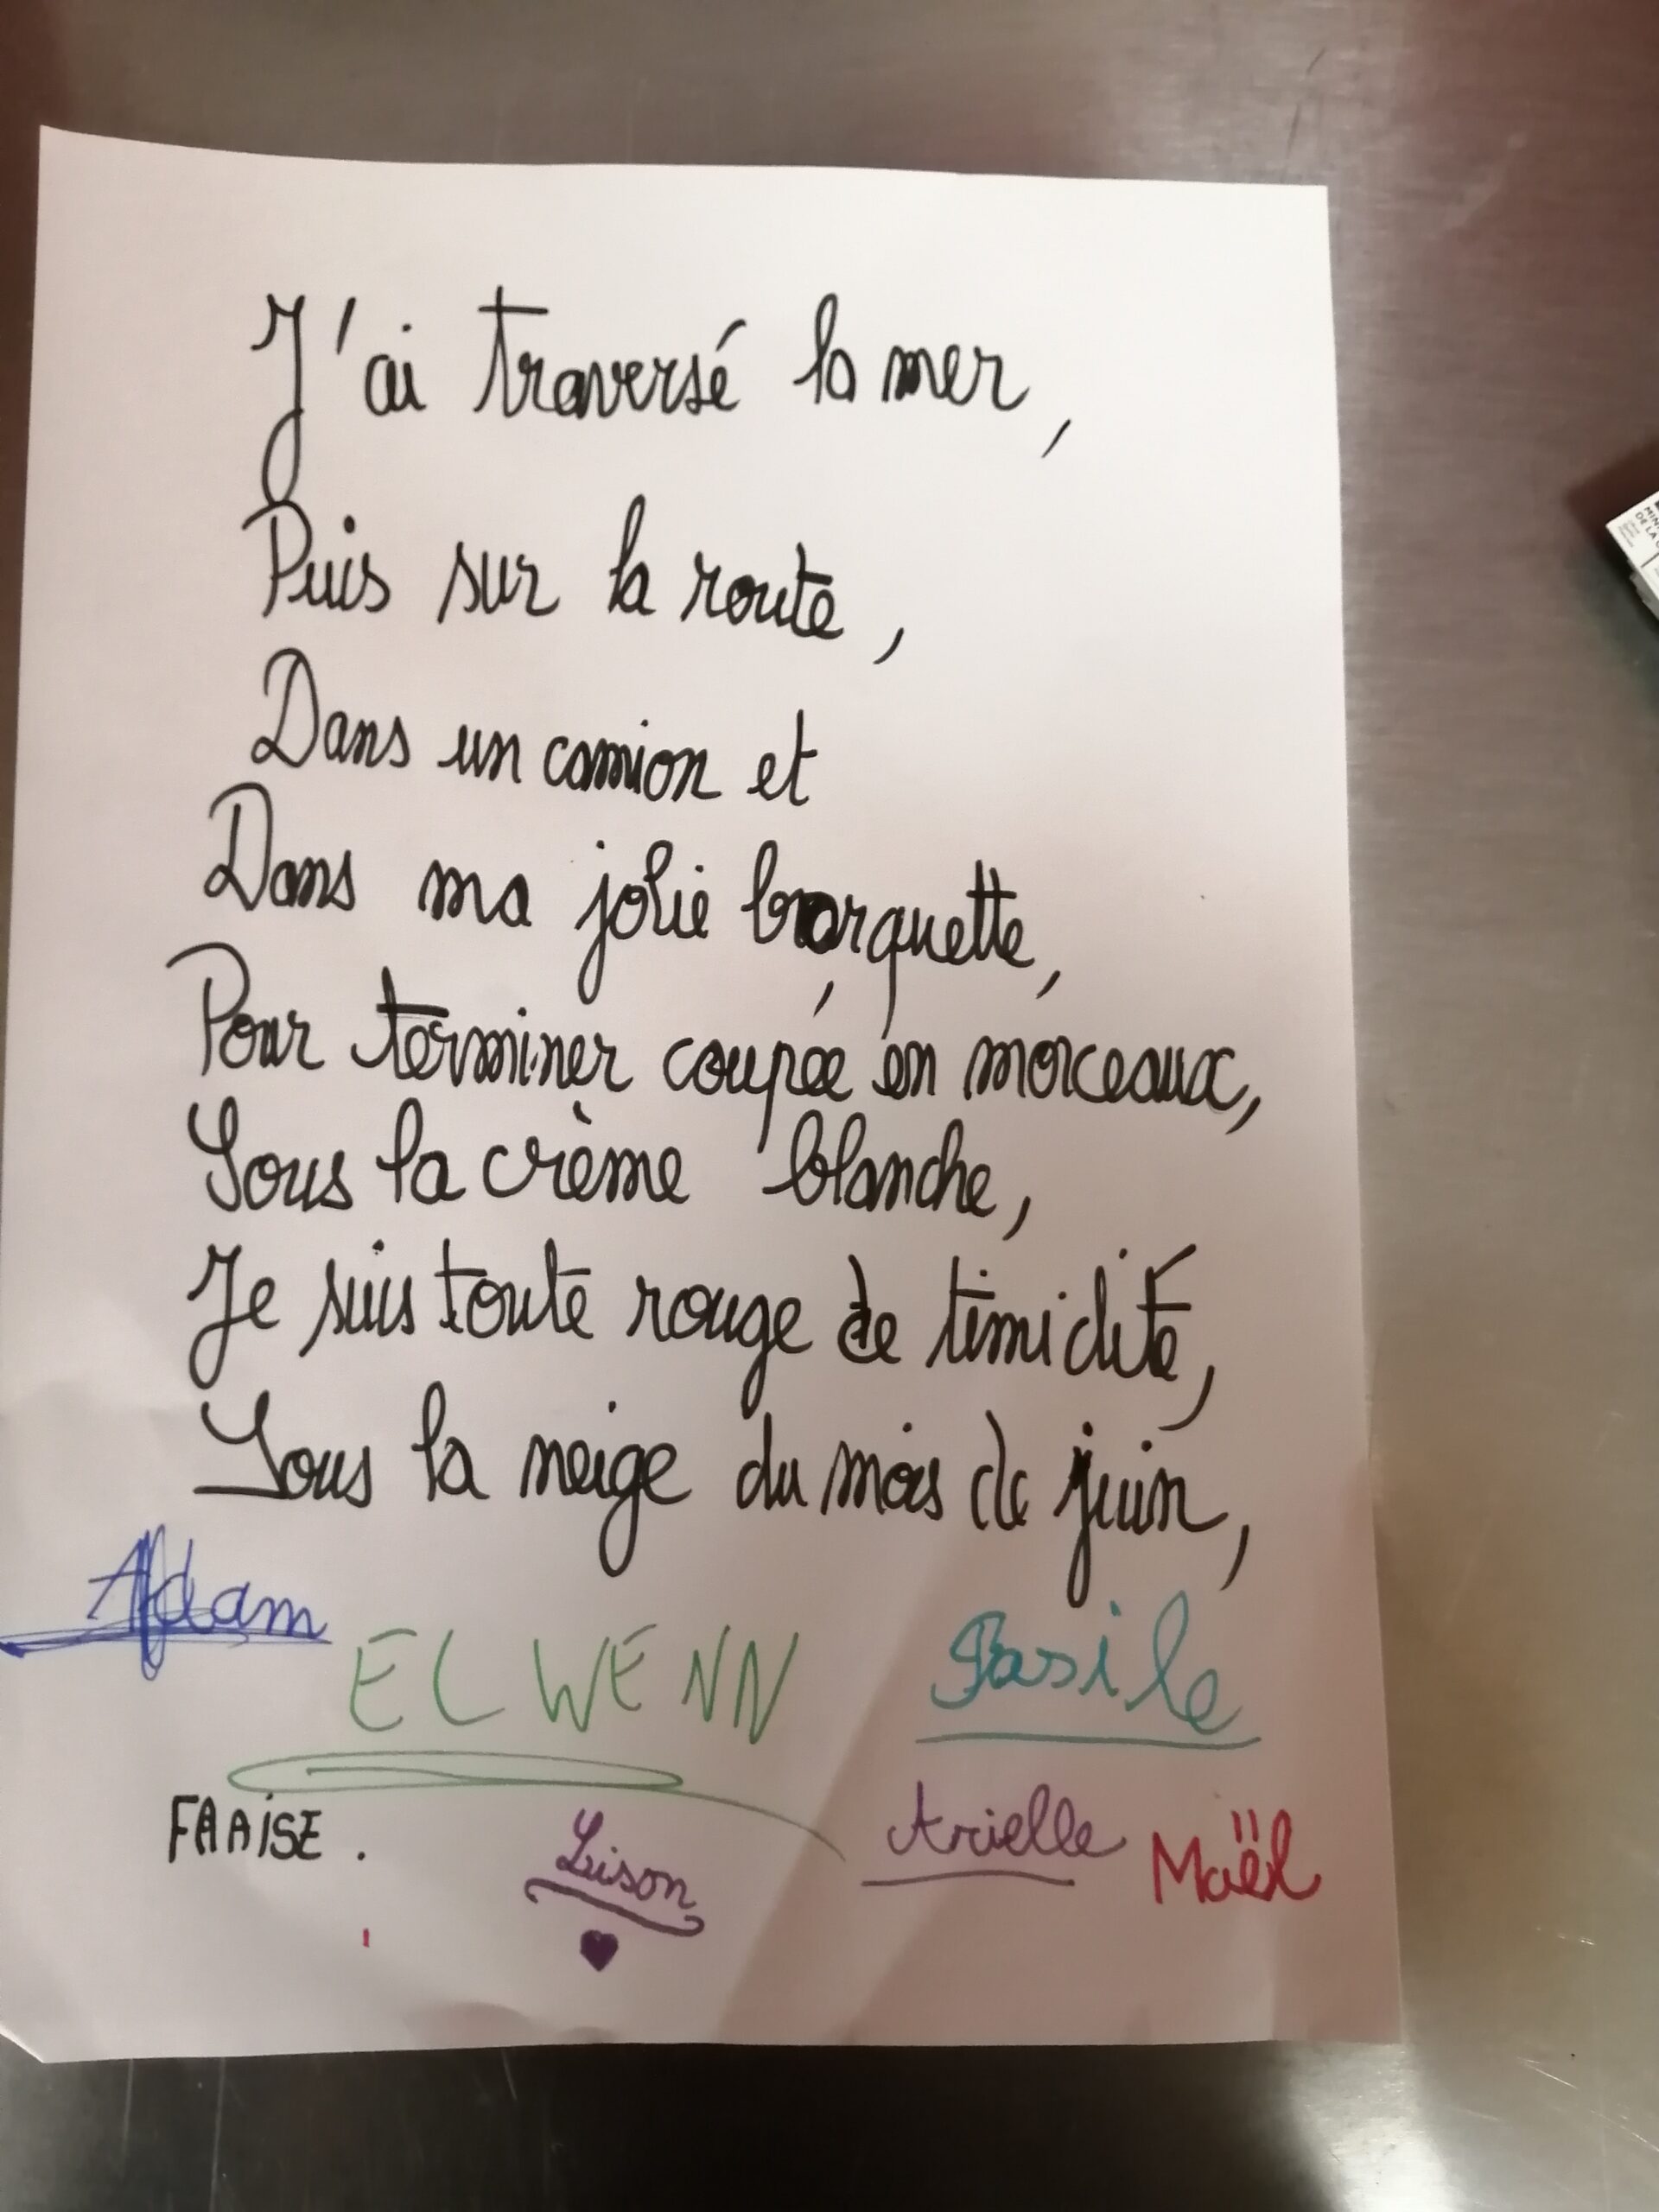 J'ai traversé la mer,
Puis sur la route,
Dans un camion et
Dans ma jolie barquette,
Pour terminer coupée en morceaux,
Sous la crème blanche,
Je suis toute rouge de timidité,
Sous la neige du mois de juin,
Adam
ELWENN
Basile
FRAISE.
Lison
Arielle
Maël